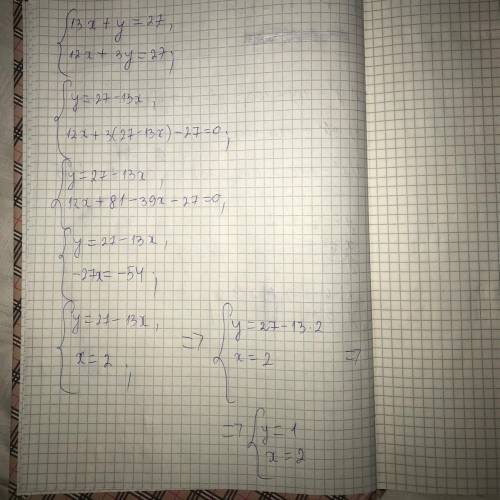 13x + y = 27,
12x + 3y = 27;
y = 27 - 13x,
12x + 3(27 - 13x) - 27 = 0;
y = 27 - 13x,
12x + 81 - 39x - 27 = 0;
y = 27 - 13x,
-27x = -54;
y = 27 - 13x,
x = 2;
=> y = 27 - 13·2
x = 2 =>
=> y = 1
x = 2